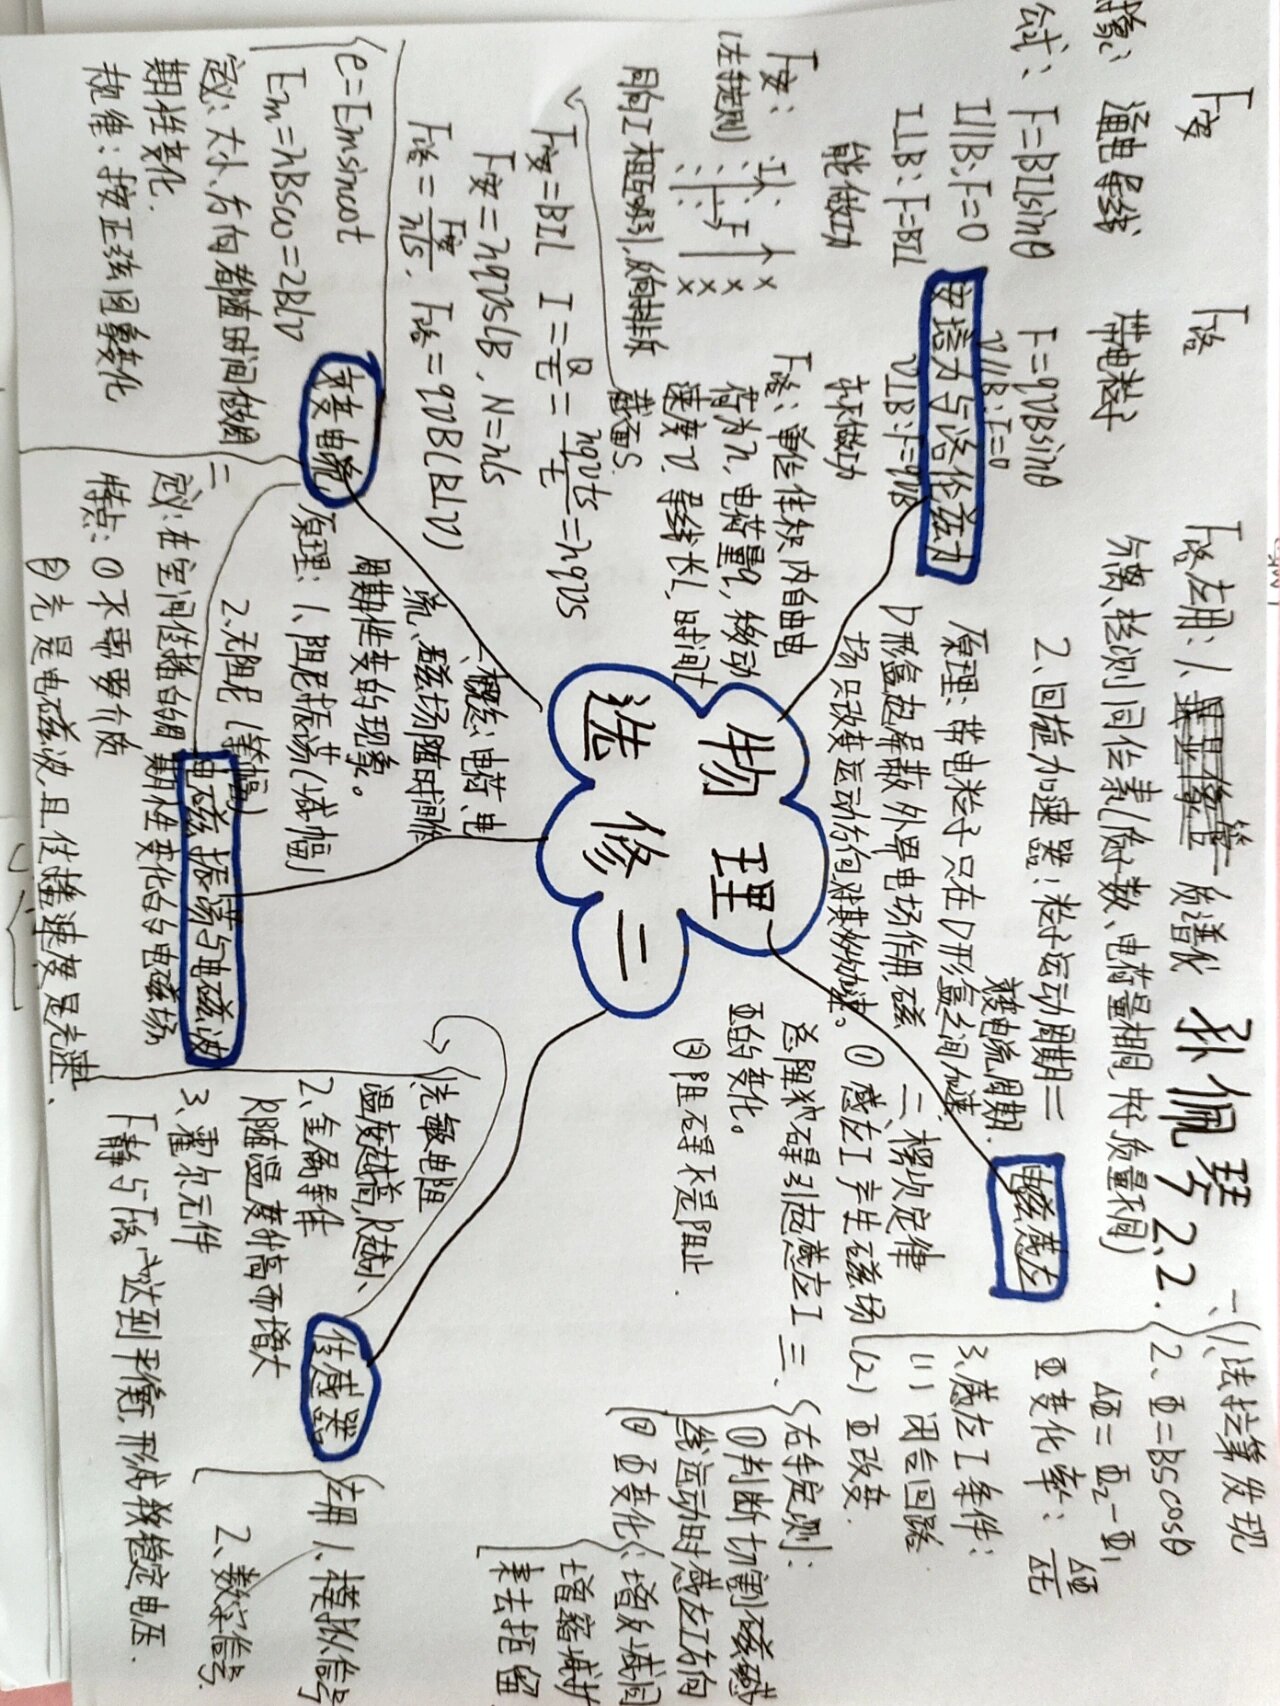 F安 F洛 F洛应用：1、质谱仪 孙佩琴 2.2.
对象：通电导线 带电粒子
分离、检测同位素(质子数、电荷量相同，中子质量不同)
公式：F=BILsinθ F=qvBsinθ
I//B：F=0 v//B：F=0
I⊥B：F=BIL v⊥B：F=qvB
能做功 永不做功
安培力与洛伦兹力
2、回旋加速器：粒子运动周期=
交变电流周期.
原理：带电粒子只在D形盒之间加速
D形盒起屏蔽外界电场作用，磁
场只改变运动方向，对其妙加速。
F安：
(左手定则)
同向I相互吸引，反向排斥
I F
× × ×
F洛：单位体积内自由电
荷为n，电荷量q，移动
速度v.导线长L，时间t
截面S.
F安=BIL I=Q/t=nqvts/t=nqvs
F安=nqvslB、N=nls
F洛=F安/nls. F洛=qvB(B⊥v)
物理
选修二
电磁感应
一、1、法拉第发现
2、Φ=BScosθ
ΔΦ=Φ2-Φ1
Φ变化率：ΔΦ/Δt
3、感应I条件：
(1) 闭合回路
(2) Φ改变.
二、楞次定律
① 感应I产生磁场
总阻碍引起感应I
Φ的变化。
② 阻碍不是阻止.
三、右手定则：
①判断切割磁感
线运动时感应I方向
② Φ变化：增反减同
增缩减扩
来去拒留
交变电流
e=Emsinωt
Em=nBSω=2Blv
定义：大小、方向都随时间做周
期性变化.
规律：按正弦图象变化
电磁振荡与电磁波
一、概念：电荷、电
流、磁场随时间作
周期性变的现象。
原理：1、阻尼振荡(减幅)
2、无阻尼(等幅)
二
定义：在空间传播的周期性变化的电磁场
特点：① 不需要介质
② 光是电磁波，且传播速度是光速.
传感器
1、光敏电阻
温度越高，R越小、
2、金属导体
R随温度升高而增大
3、霍尔元件
F静与F洛达到平衡，形成稳定电压.
应用 1、模拟信号
2、数字信号.